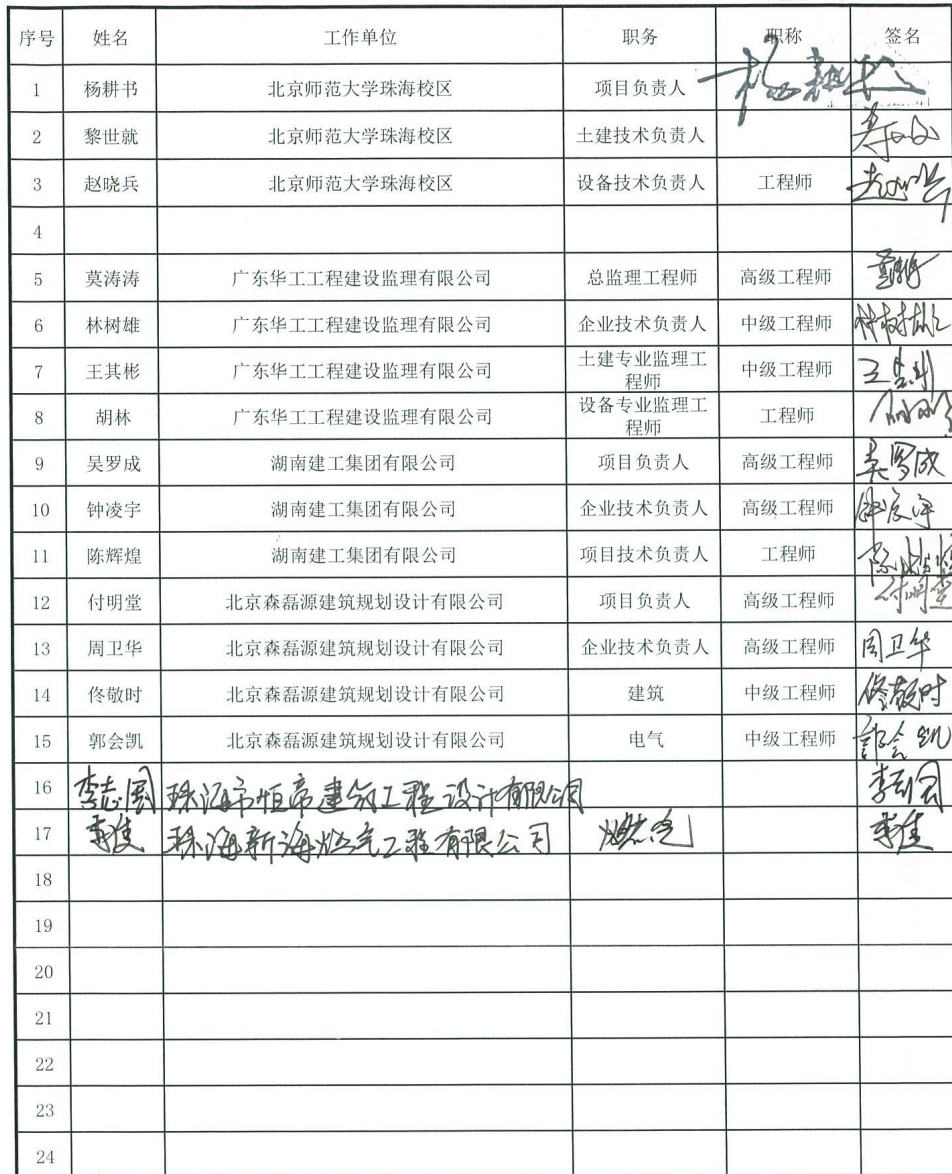 序号 姓名 工作单位 职务 职称 签名
1 杨耕书 北京师范大学珠海校区 项目负责人
2 黎世就 北京师范大学珠海校区 土建技术负责人
3 赵晓兵 北京师范大学珠海校区 设备技术负责人 工程师
4
5 莫涛涛 广东华工工程建设监理有限公司 总监理工程师 高级工程师
6 林树雄 广东华工工程建设监理有限公司 企业技术负责人 中级工程师 林树雄
7 王其彬 广东华工工程建设监理有限公司 土建专业监理工程师 中级工程师
8 胡林 广东华工工程建设监理有限公司 设备专业监理工程师 工程师
9 吴罗成 湖南建工集团有限公司 项目负责人 高级工程师 吴罗成
10 钟凌宇 湖南建工集团有限公司 企业技术负责人 高级工程师
11 陈辉煌 湖南建工集团有限公司 项目技术负责人 工程师 陈辉煌
12 付明堂 北京森磊源建筑规划设计有限公司 项目负责人 高级工程师 付明堂
13 周卫华 北京森磊源建筑规划设计有限公司 企业技术负责人 高级工程师 周卫华
14 佟敬时 北京森磊源建筑规划设计有限公司 建筑 中级工程师 佟敬时
15 郭会凯 北京森磊源建筑规划设计有限公司 电气 中级工程师 郭会凯
16 李志国 珠海市恒帝建筑工程设计有限公司 李志国
17 珠海新海燃气工程有限公司 燃气
18
19
20
21
22
23
24